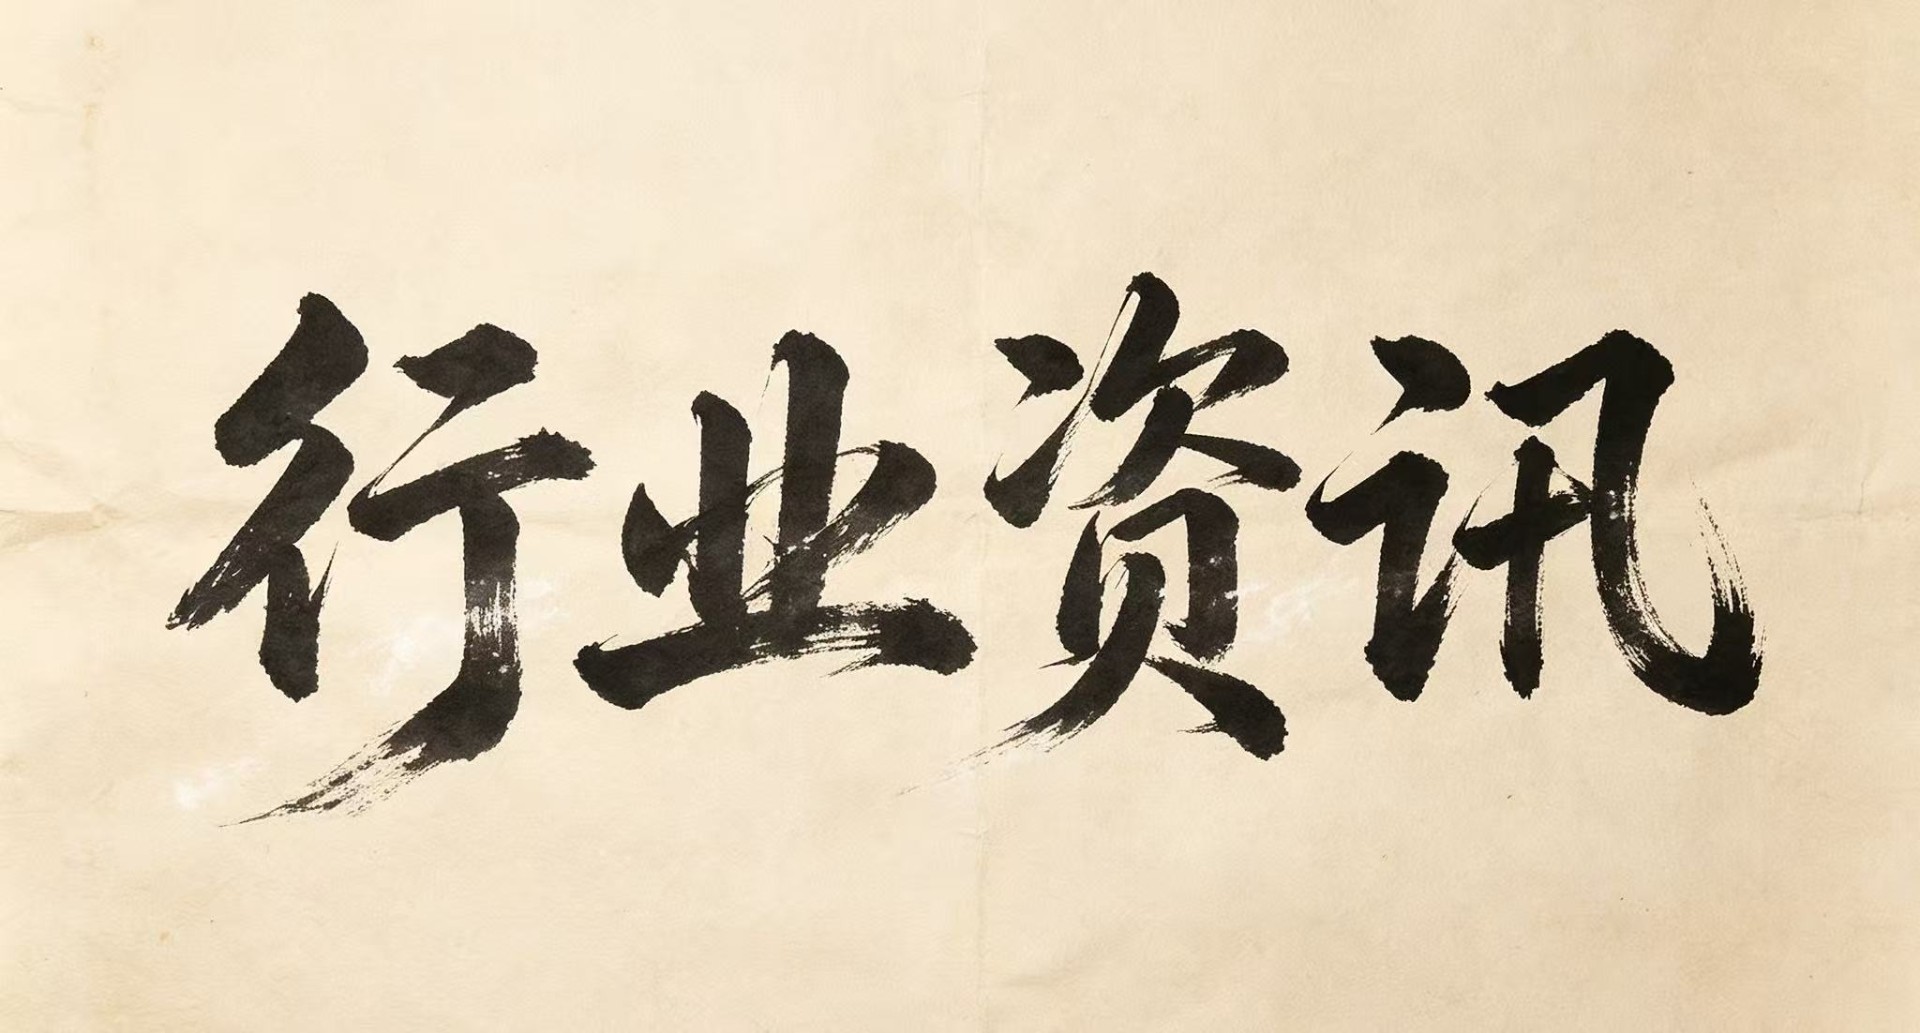 行业资讯